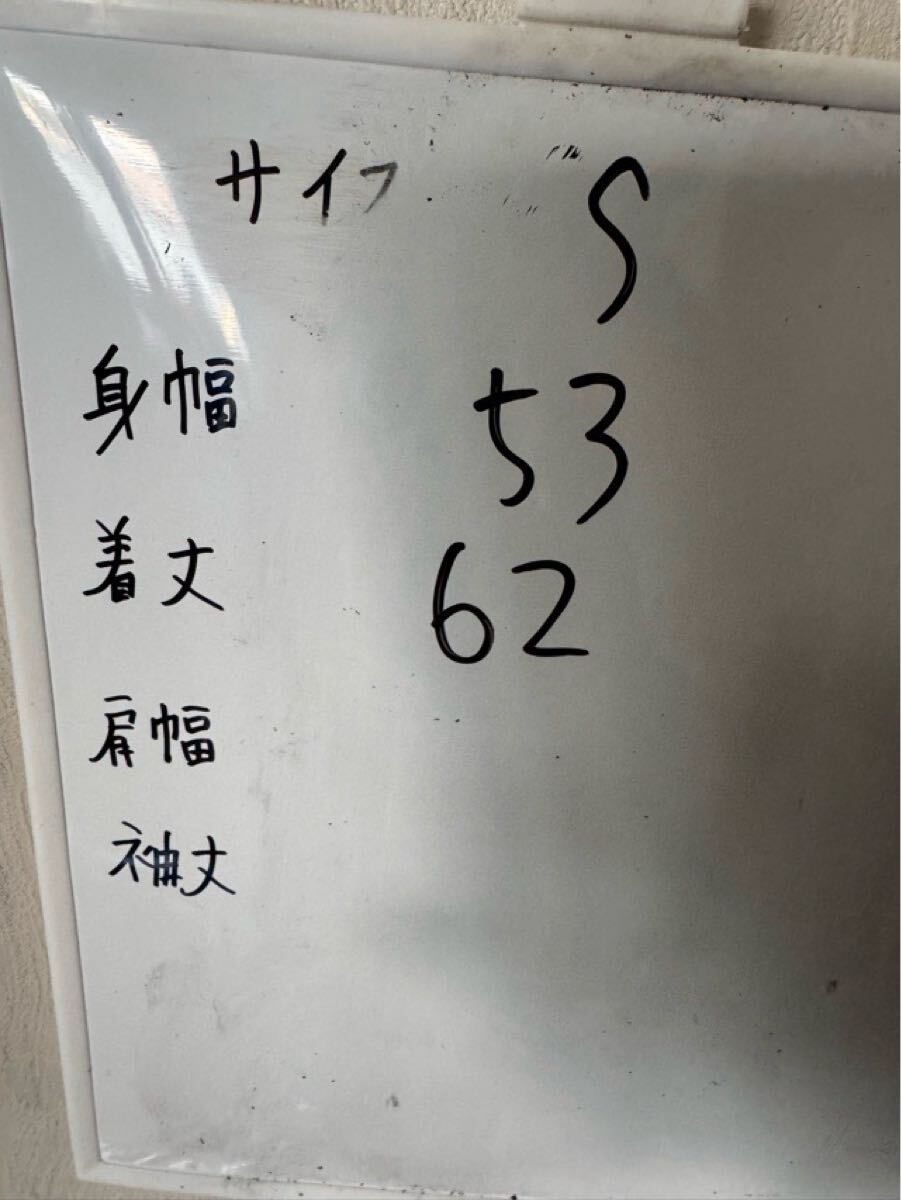 サイフ S
身幅 53
着丈 62
肩幅
袖丈